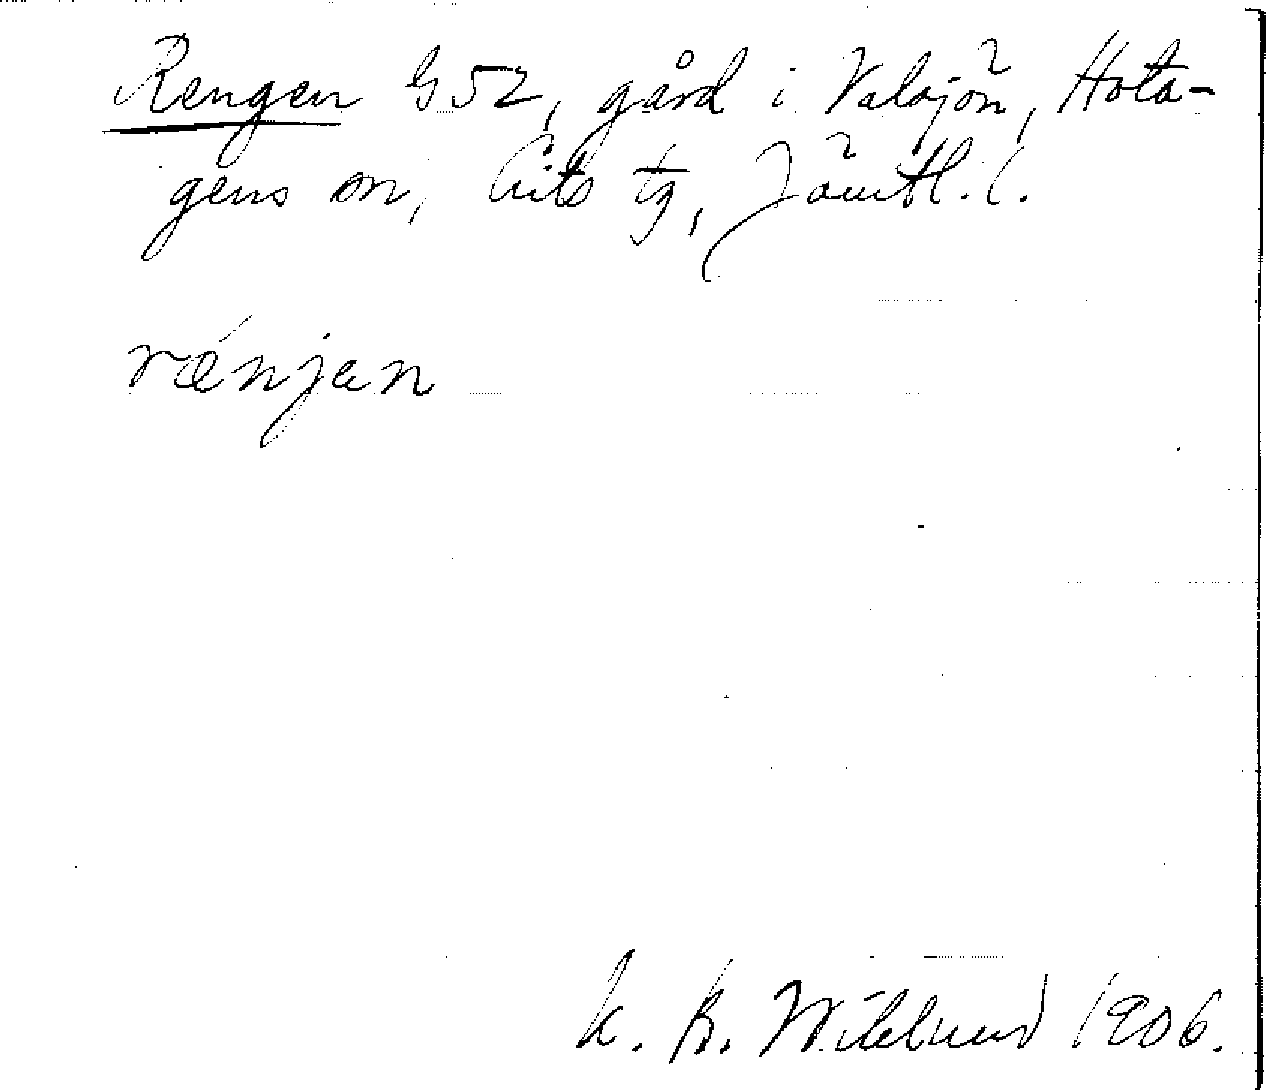 Rengen G52, gård i Valsjön, Hota-
gens sn, Lits tg, Jämtl. l.
rénjan
K. B. Wiklund 1906.